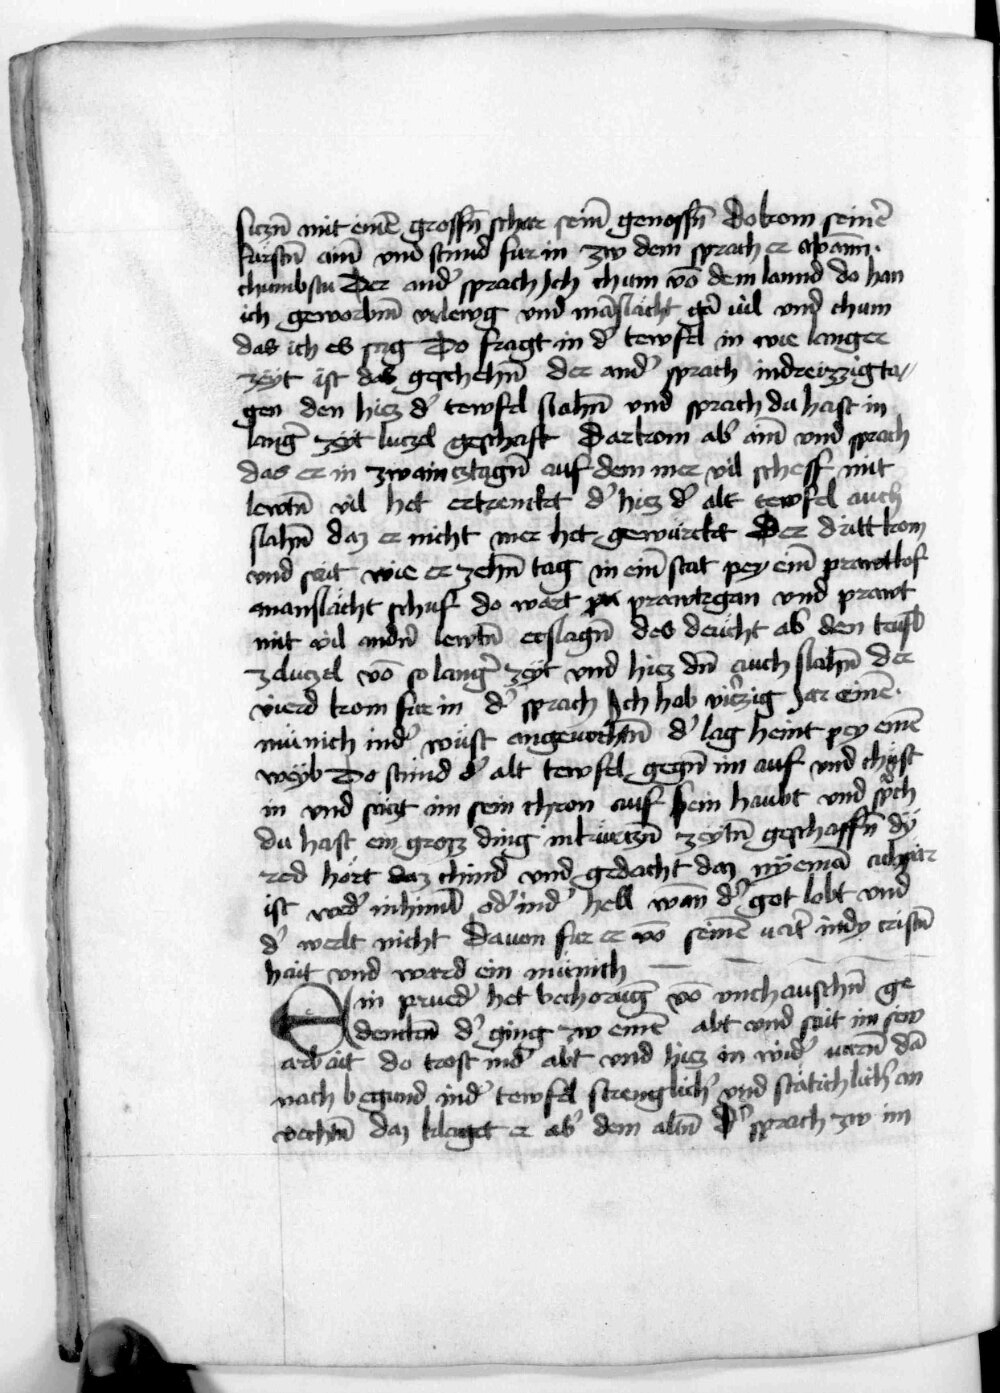 siczn̄ mit eim̄e grossn̄ schar sein̄ genossn̄ Do kom sein̄e
fürstn̄ ain̄ vnd stund fur in zw dem sprach er vō wann̄
chumbstu Der and' sprach Ich chum vō dem lannd do han
ich geworbn̄ vrlewg vnd mãslacht gar vil vnd chum
das ich es sag Do fragt in d' tewfel in wie langer
zeyt ist das geschehn̄ der and' sprach in dreizzig ta//
gen den hiez d' tewfel slahn̄ vnd sprach du hast in
lang' zeyt luczel geschaft Dar kom ab' ain̄ vnd sprach
das er in zwainczk tagn̄ auf dem mer vil scheff mit
lewtn̄ vil het ertrenckt d' hiez d' alt tewfel auch
slahn̄ daz er nicht mer het gewürckt Der dritt kom
vnd sait wie er zehn̄ tag in ein̄ stat pey ein̄ prawtlof
manslacht schuf do wart prawtgan vnd prawt
mit vil andn̄ lewtn̄ erslagn̄ des deücht ab' den teufl
ze luczel vō so lang' zeyt vnd hiez dn̄ auch slahn̄ der
vierd kom fur in d' sprach Ich hab vierzig Jar ein̄e
münich in d' wüst angeuochtn̄ d' lag heint pey ein̄e
weyb Do stund d' alt tewfel gegn̄ im auf vnd chüst
in vnd saczt im sein chron auf sein haubt vnd sprach
du hast ein grozz ding in kurczn̄ zeytn̄ geschaffn̄ dy
red hört daz chind vnd gedacht daz nyemã
ist wed' in himl od' in d' hell wan̄ d' got lobt vnd
d' werlt nicht Dauon fur er vō sein̄e vat' in dy cristn̄
hait vnd ward ein münich
Ein prued' het bechorūg vō vnchauschn̄ ge
denckn̄ d' ging zw ein̄e abt vnd sait im sein
arbait do trost in d' abt vnd hiez in wid' varn̄ dã
nach begund in d' tewfel strenglich' vnd stätichlich' an
vechtn̄ daz klaget er ab' dem altn̄ D' sprach zw im